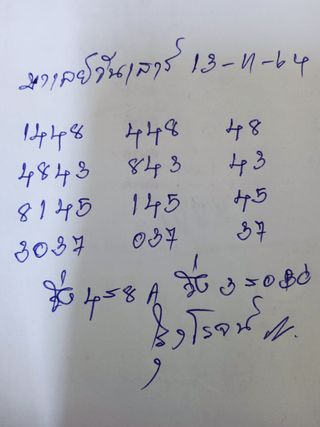 มาเลย์วันเสาร์ 13-11-64
1448 448 48
4843 843 43
8145 145 45
3037 037 37
วิ่ง 4=8 A วิ่ง 3=0
โรจน์ N.